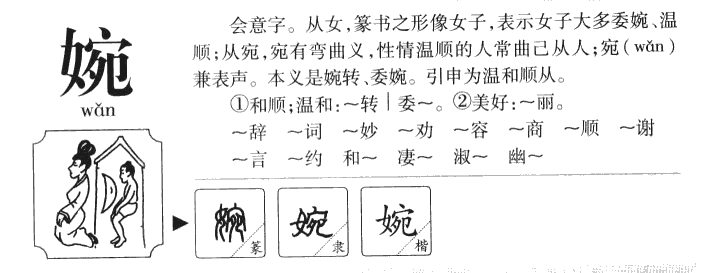 婉
wǎn
会意字。从女,篆书之形像女子,表示女子大多委婉、温
顺;从宛,宛有弯曲义,性情温顺的人常曲己从人;宛(wǎn)
兼表声。本义是婉转、委婉。引申为温和顺从。
①和顺;温和:~转|委~。②美好:~丽。
~辞 ~词 ~妙 ~劝 ~容 ~商 ~顺 ~谢
~言 ~约 和~ 凄~ 淑~ 幽~
婉 篆 婉 隶 婉 楷